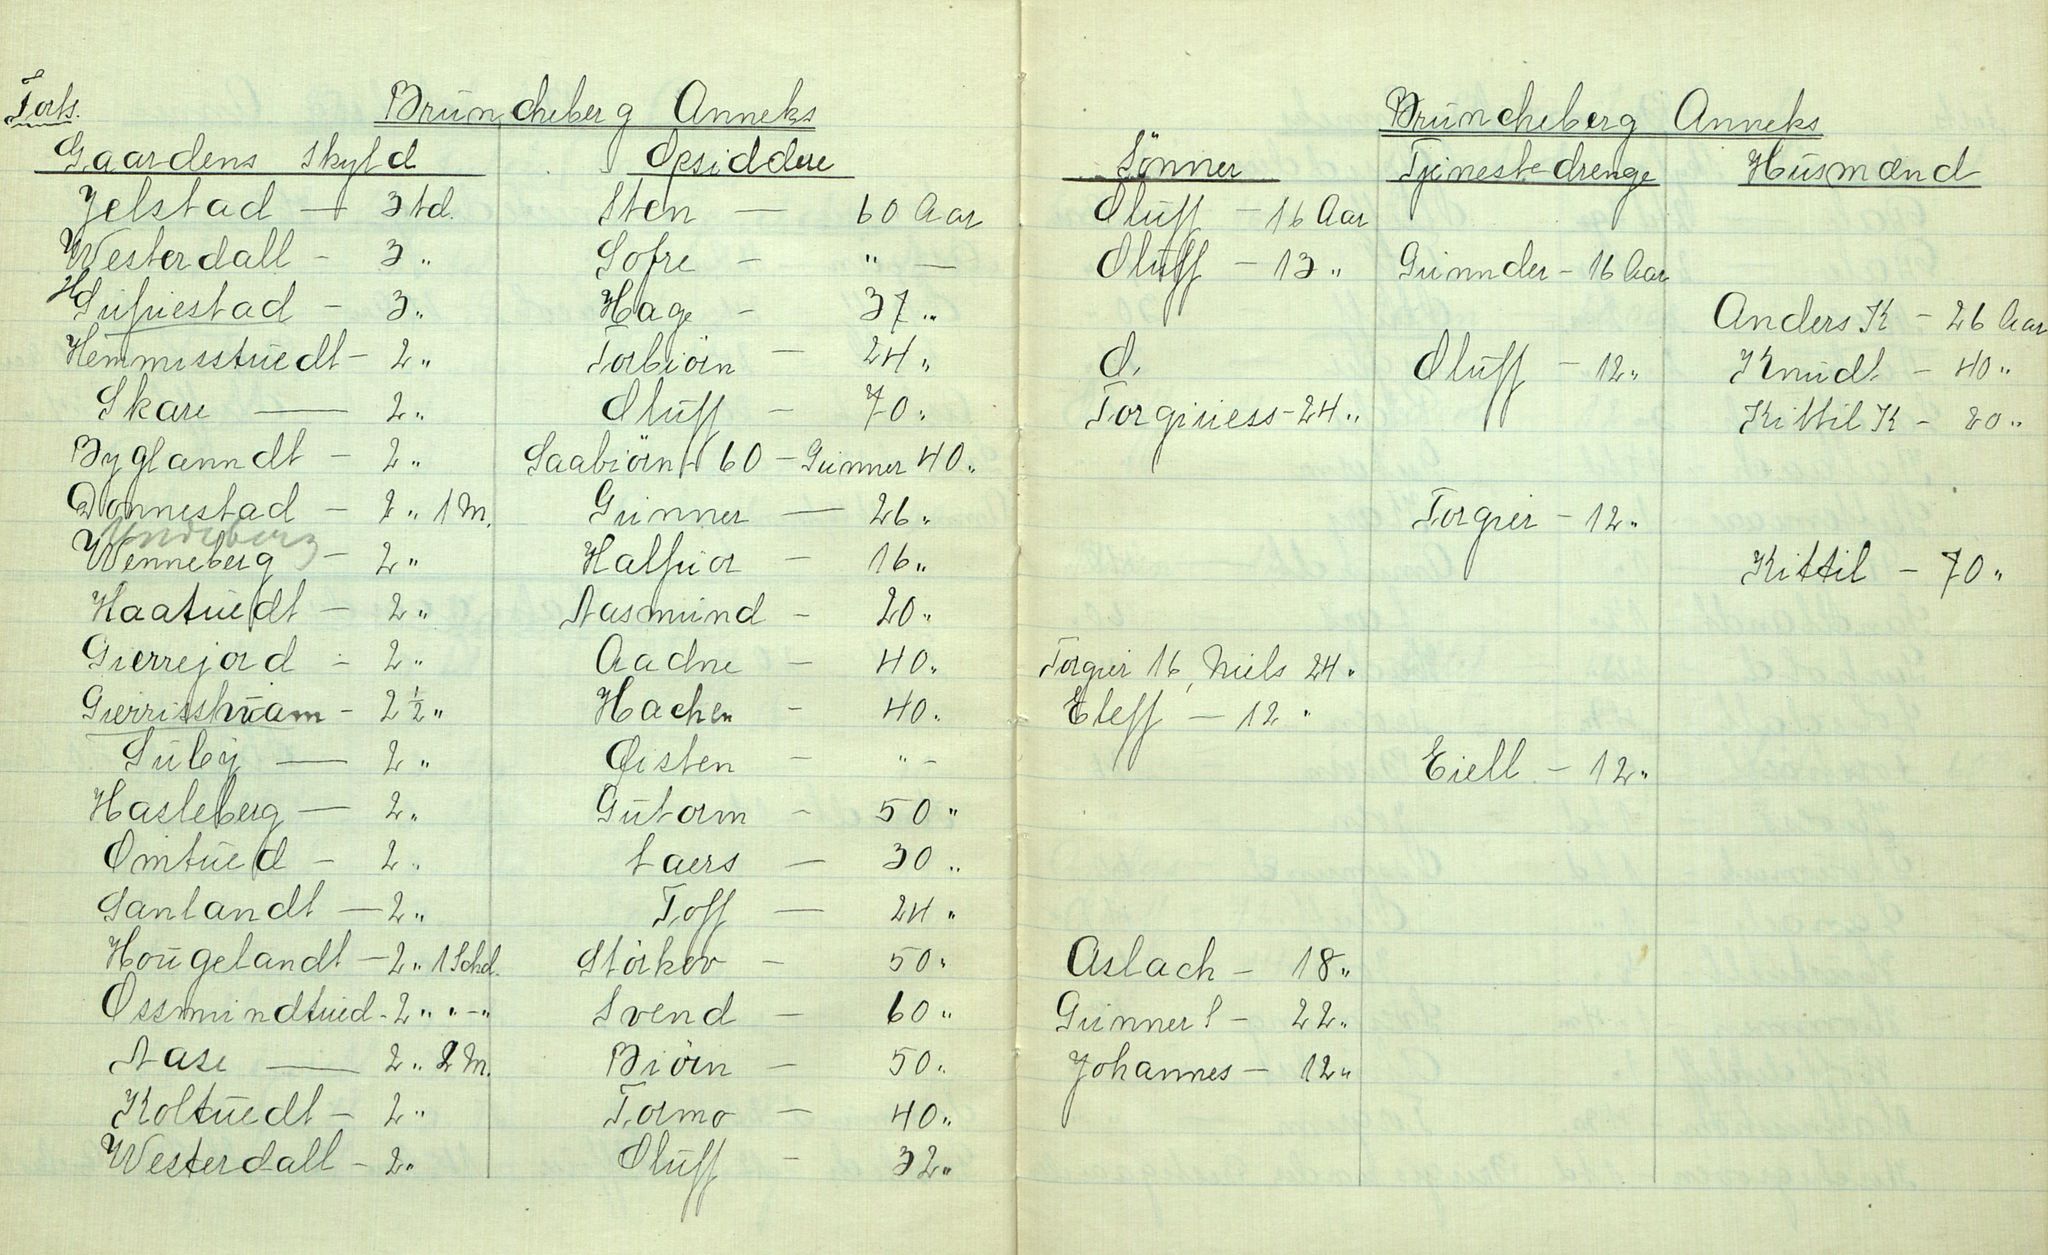 Forts. Brüncheberg Anneks
Gaardens Skyld Opsiddere
Jelstad — 3 td. Sten — 60 Aar
Westerdall - 3 " Sofre - " —
Hage - 37 "
Hemmisstuedt - 2 " Torbiörn - 24 "
Skare — 2 " Oluff - 70 "
Byglanndt - 2 " Saabiörn - 60 - Gunner 40 "
Donnestad - 2 " 1 M. Gunner — 26 "
Undeberg
Wenneberg - 2 " Halfuor - 16 "
Haatuedt - 2 " Aasmund - 20 "
Gierrejord - 2 " Aadne - 40 "
Gierrisshuam - 2 1/2 " Hachen - 40 "
Suby — 2 " Øisten - " -
Hasleberg — 2 " Gutorm - 50 "
Omtued - 2 " Laers — 30 "
Sanlandt — 2 " Toff — 24 "
Hougelandt - 2 " 1 Schd. Storkor - 50 "
Ossmundtued - 2 " " - " Svend - 60 "
Aase — 2 " 2 M. Biörn - 50 "
Koltuedt - 2 " Tormo - 40 "
Westerdall - 2 " Oluff - 32 "
Brüncheberg Anneks
Sönner Tjenestedrenge Husmænd
Oluff - 16 Aar
Oluff - 13 " Gunnder - 16 Aar
Anders K - 26 Aar
O. Oluff - 12 " Knudt - 40 "
Torgiuess - 24 " Kittil K - 20 "
Torgier - 12 "
Kittil - 70 "
Torgier 16, Niels 24 "
Eleff - 12 "
Eiell - 12 "
Aslach - 18 "
Gunner S - 22 "
Johannes - 12 "